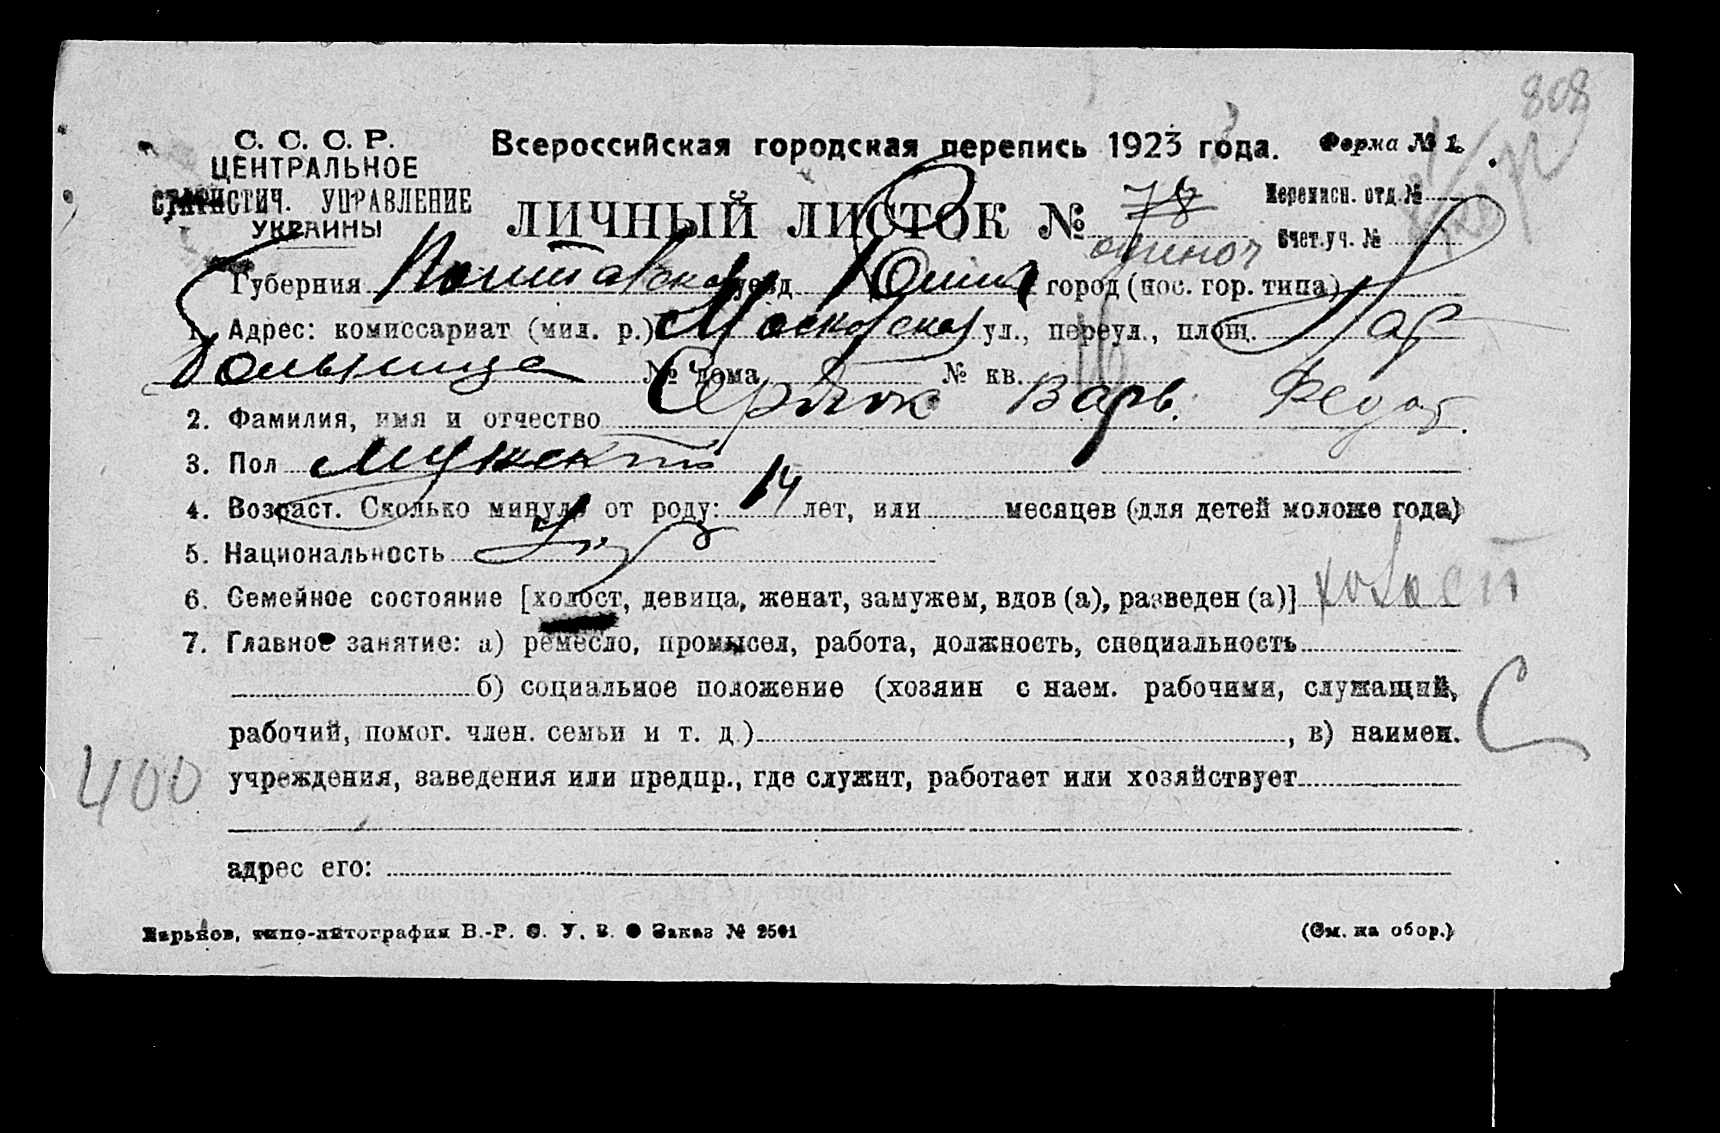 808
С. С. С. Р.
ЦЕНТРАЛЬНОЕ
СТАТИСТИЧ. УПРАВЛЕНИЕ
УКРАИНЫ
Всероссийская городская перепись 1923 года.
Форма № 1.
ЛИЧНЫЙ ЛИСТОК № 78
одиноч
Переписн. отд. №
Счет. уч. №
Губерния Полтавская уезд город (пос. гор. типа)
1. Адрес: комиссариат (мил. р.) Московская ул., переул., площ. Нар
больница № дома № кв. 16
2. Фамилия, имя и отчество Сердюк Варв. Федот.
3. Пол мужск
4. Возраст. Сколько минуло от роду: 14 лет, или месяцев (для детей моложе года)
5. Национальность Укр
6. Семейное состояние [холост, девица, женат, замужем, вдов (а), разведен (а)] холост
7. Главное занятие: а) ремесло, промысел, работа, должность, специальность
б) социальное положение (хозяин с наем. рабочими, служащий,
рабочий, помог. член. семьи и т. д.) , в) наимен.
С
400
учреждения, заведения или предпр., где служит, работает или хозяйствует
адрес его:
Харьков, типо-литография В.-Р. С. У. В. Заказ № 2501
(См. на обор.)